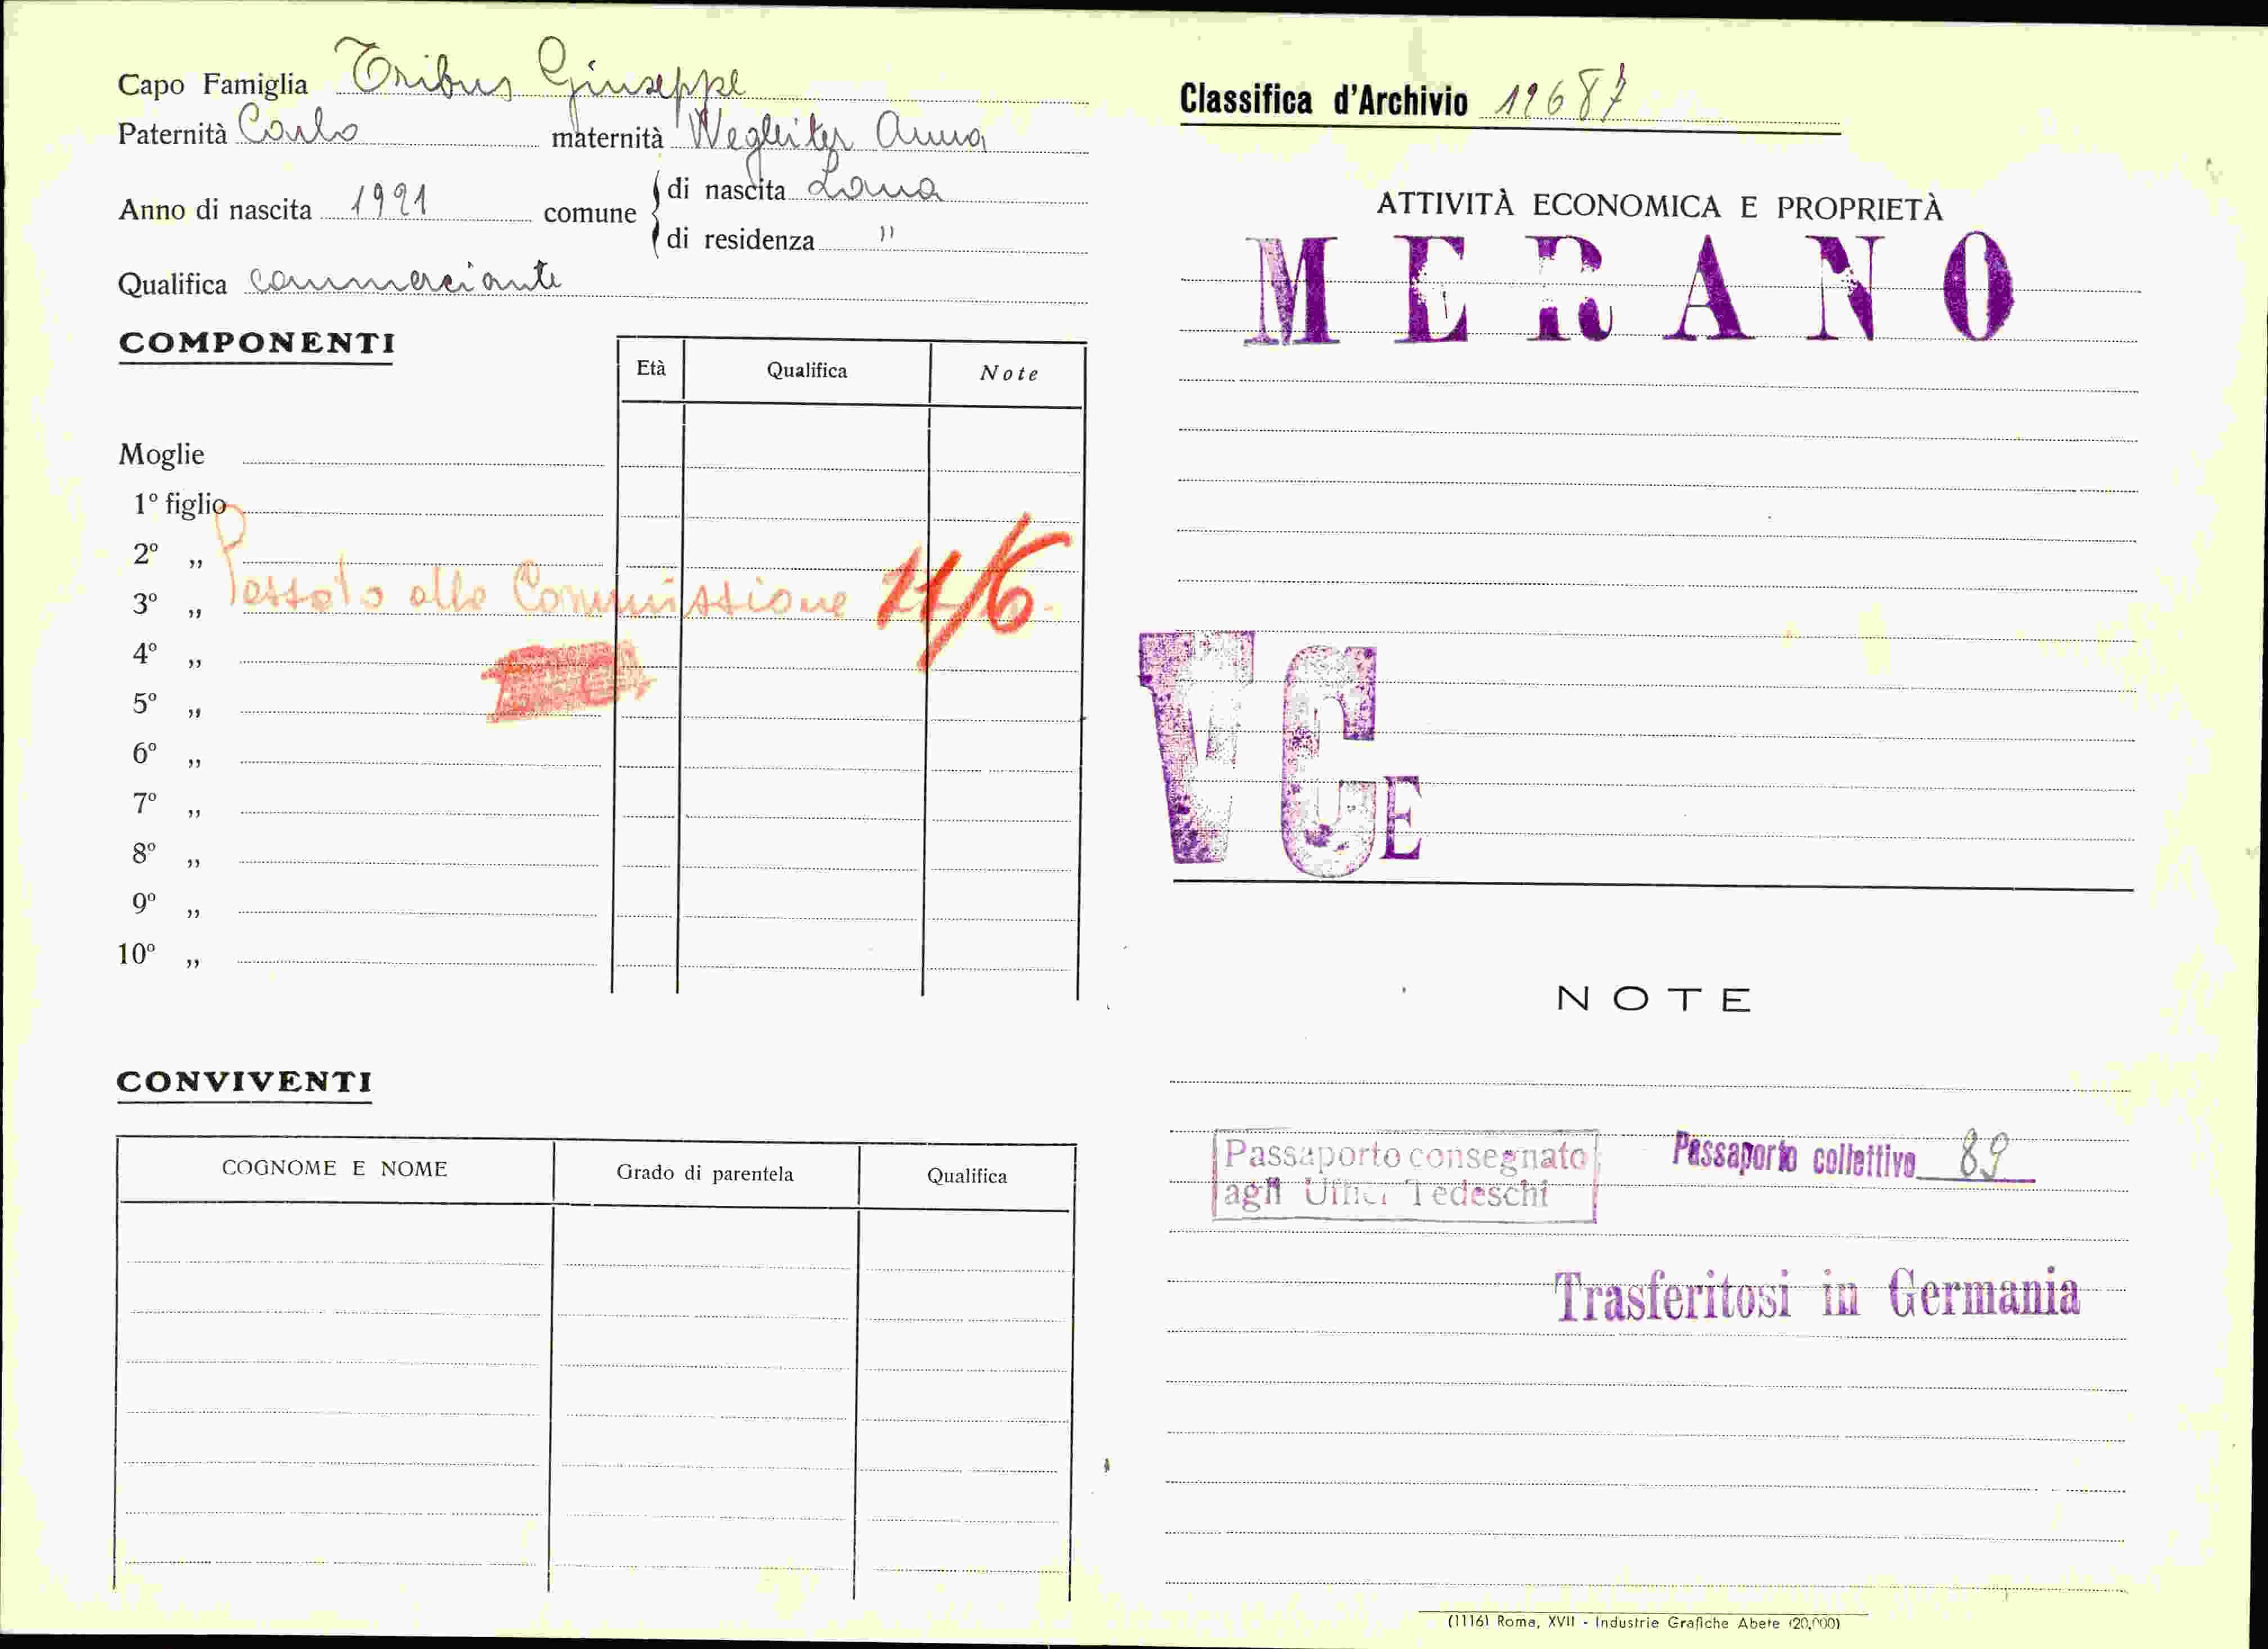 Capo Famiglia Tribus Giuseppe
Paternità Carlo maternità Wegleiter Anna
Anno di nascita 1921 comune di nascita Lana
di residenza "
Qualifica commerciante
COMPONENTI
Età Qualifica Note
Moglie
1º figlio
2º „
3º „
Passato alla Commissione 11/6
4º „
5º „
6º „
7º „
8º „
9º „
10º „
CONVIVENTI
COGNOME E NOME Grado di parentela Qualifica
Classifica d'Archivio 19687
ATTIVITÀ ECONOMICA E PROPRIETÀ
MERANO
VCE
NOTE
Passaporto consegnato
agli Uffici Tedeschi
Passaporto collettivo 89
Trasferitosi in Germania
(1116) Roma, XVII - Industrie Grafiche Abete (20,000)